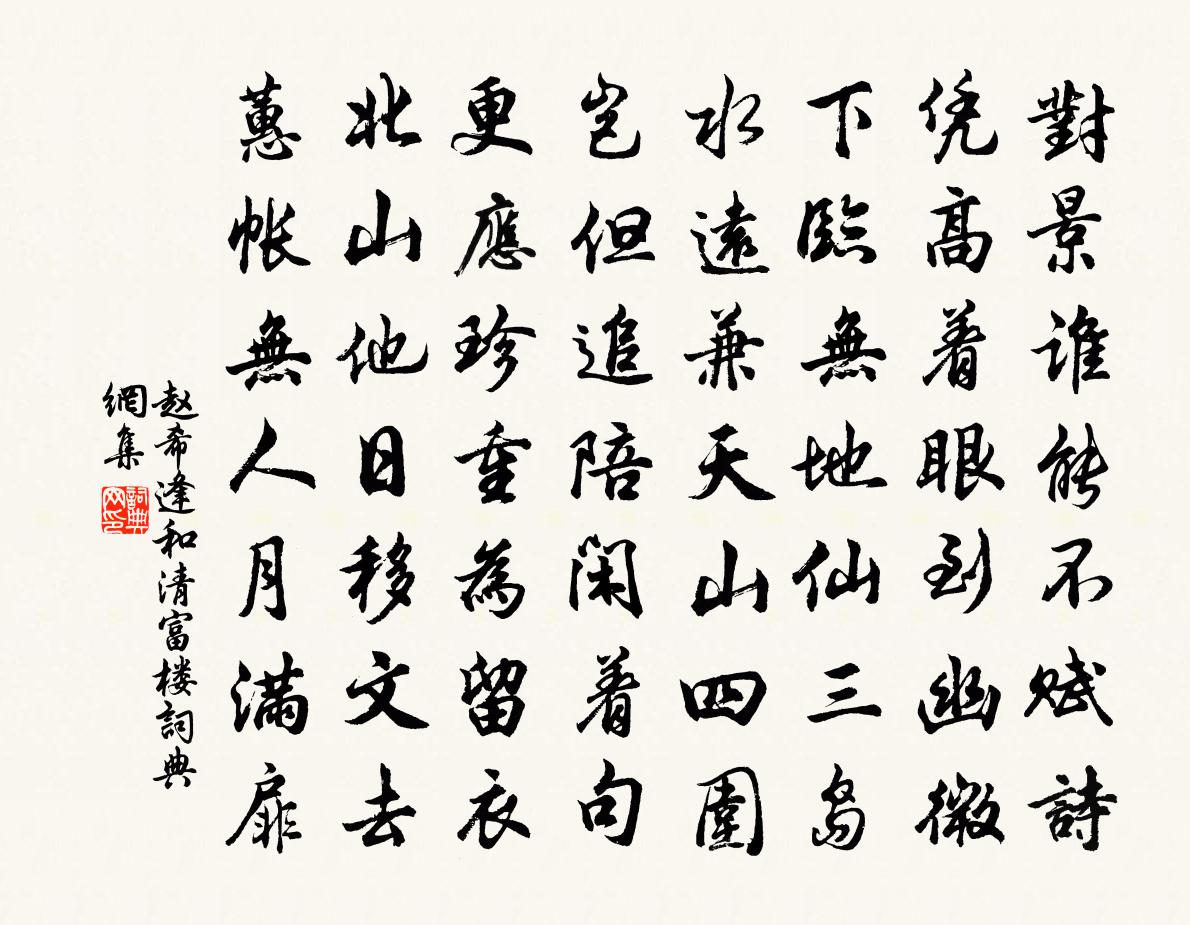 對景誰能不賦詩
凭高着眼到幽微
下臨無地仙三島
水遠兼天山四圍
豈但追陪閑着句
更應珍重為留衣
北山他日移文去
蕙帳無人月滿扉
赵希逢和清富楼詞典
網集
詞典
网印